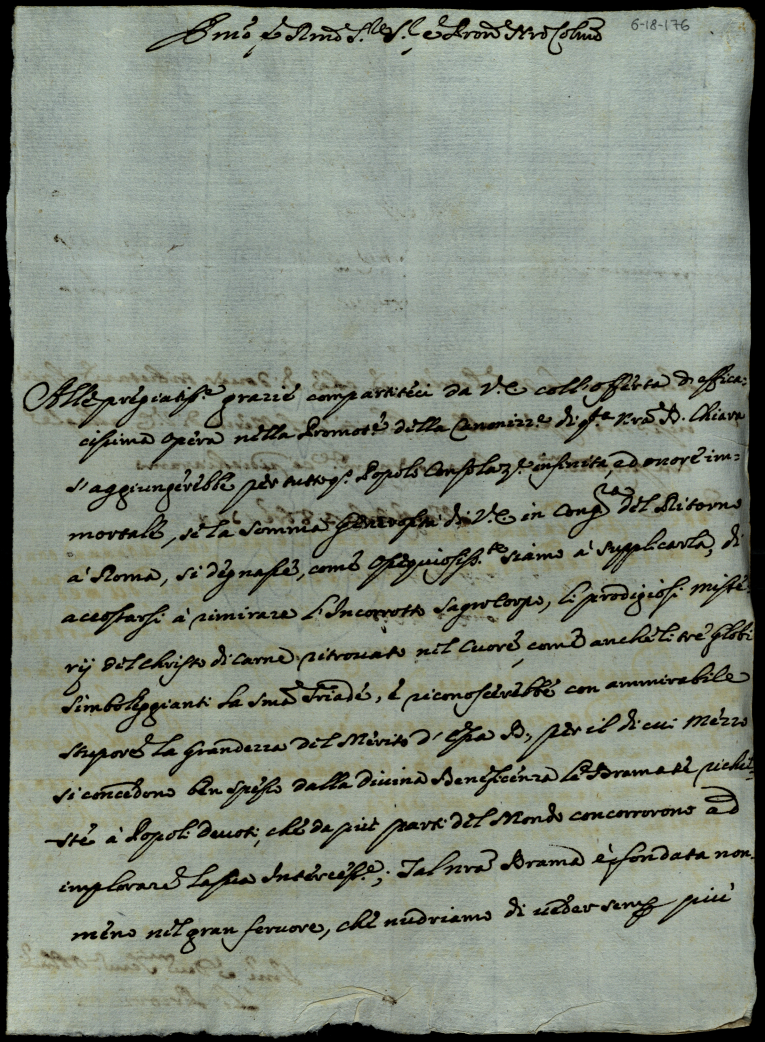 6-18-176
Emo e Rmo S.re S.r e Prone Nro Colmo
Alle pregiatiss.e grazie compartiteci da V.E. coll'offerta d'effica=
cissima opera nella Promot.e della Canonizz.e di q.ta Nra B. Chiara
s'aggiungerebbe per tutto q.o Popolo Consolaz.e infinita, ad onore im=
mortale, se la somma generosità di V.E. in Cong.ra del Ritorno
à Roma, si degnasse, come Ossequiosiss.te siamo à supplicarla, di
accostarsi à rimirare l'Incorrotto Sagro Corpo, li prodigiosi miste=
rij del Christo di carne ritrovato nel Cuore, come anche li trè globi
simboleggianti la Sma Triade, e riconoscerebbe con ammirabile
stupore la grandezza del Merito d'essa B., per il di cui mezzo
si concedono ben spesso dalla divina Beneficenza le Bramate richie=
ste à Popoli devoti, che da più parti del Mondo concorrono ad
implorare la sua Intercess.e; Tal nra Brama è fondata non
meno nel gran fervore, che nudriamo di veder semp più